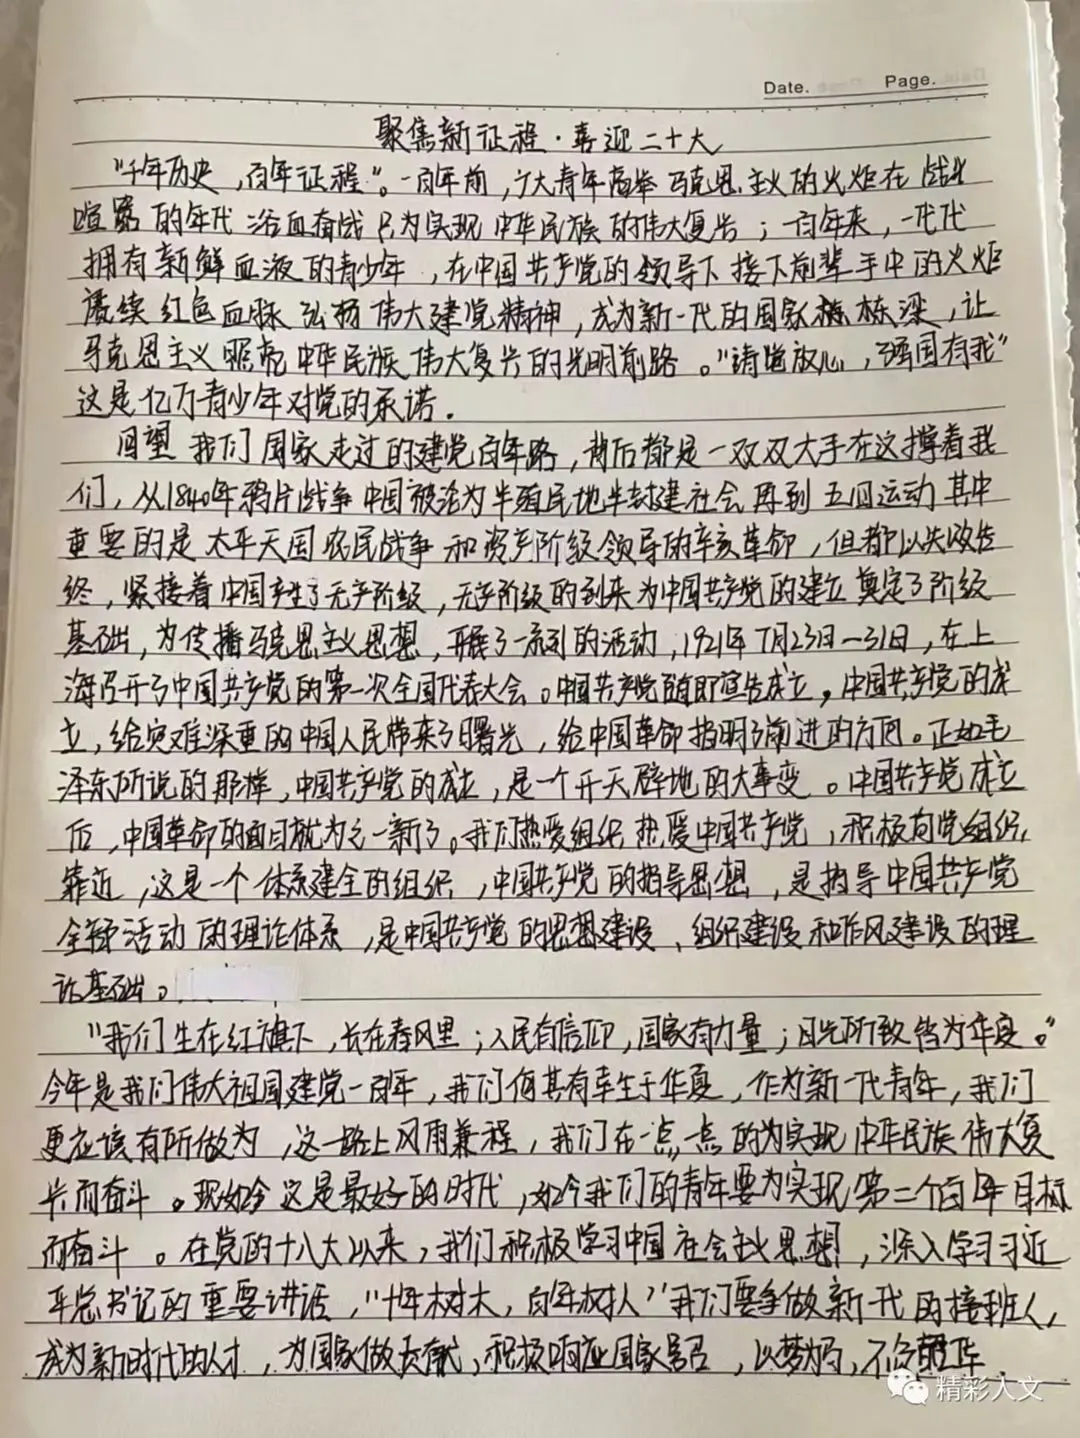 Date. Page.
聚焦新征程·喜迎二十大
“千年历史,百年征程”。一百年前,广大青年高举马克思主义的火炬在战火
喧嚣的年代浴血奋战只为实现中华民族的伟大复兴;一百年来,一代代
拥有新鲜血液的青少年,在中国共产党的领导下接下前辈手中的火炬
赓续红色血脉弘扬伟大建党精神,成为新一代的国家栋梁,让
马克思主义照亮中华民族伟大复兴的光明前路。“请党放心,强国有我”
这是亿万青少年对党的承诺.
回望我们国家走过的建党百年路,背后都是一双双大手在这撑着我
们,从1840年鸦片战争中国被沦为半殖民地半封建社会再到五四运动其中
重要的是太平天国农民战争和资产阶级领导的辛亥革命,但都以失败告
终,紧接着中国产生了无产阶级,无产阶级的到来为中国共产党的建立奠定了阶级
基础,为传播马克思主义思想,开展了一系列的活动,1921年7月23日—31日,在上
海召开了中国共产党的第一次全国代表大会。中国共产党随即宣告成立。中国共产党的成
立,给灾难深重的中国人民带来了曙光,给中国革命指明了前进的方向。正如毛
泽东所说的那样,中国共产党的成立,是一个开天辟地的大事变。中国共产党成立
后,中国革命的面目就为之一新了。我们热爱组织热爱中国共产党,积极向党组织
靠近,这是一个体系建全的组织,中国共产党的指导思想,是指导中国共产党
全部活动的理论体系,是中国共产党的思想建设、组织建设和作风建设的理
论基础。
“我们生在红旗下,长在春风里;人民有信仰,国家有力量;目光所致皆为华夏。”
今年是我们伟大祖国建党一百年,我们何其有幸生于华夏,作为新一代青年,我们
更应该有所做为,这一路上风雨兼程,我们在一点一点的为实现中华民族伟大复
兴而奋斗。现如今这是最好的时代,如今我们的青年要为实现第二个百年目标
而奋斗。在党的十八大以来,我们积极学习中国社会主义思想,深入学习习近
平总书记的重要讲话,“十年树木,百年树人”我们要争做新一代的接班人,
成为新时代的人才,为国家做贡献,积极响应国家号召,以梦为马,不负韶华.
精彩人文